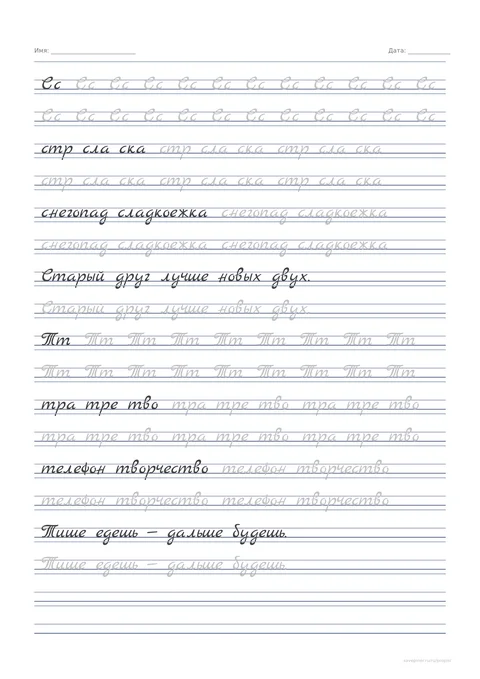 Имя: Дата:
Сс Сс Сс Сс Сс Сс Сс Сс Сс Сс Сс Сс
Сс Сс Сс Сс Сс Сс Сс Сс Сс Сс Сс Сс
стр сла ска стр сла ска стр сла ска
стр сла ска стр сла ска стр сла ска
снегопад сладкоежка снегопад сладкоежка
снегопад сладкоежка снегопад сладкоежка
Старый друг лучше новых двух.
Старый друг лучше новых двух.
Тт Тт Тт Тт Тт Тт Тт Тт Тт
Тт Тт Тт Тт Тт Тт Тт Тт Тт
тра тре тво тра тре тво тра тре тво
тра тре тво тра тре тво тра тре тво
телефон творчество телефон творчество
телефон творчество телефон творчество
Тише едешь — дальше будешь.
Тише едешь — дальше будешь.